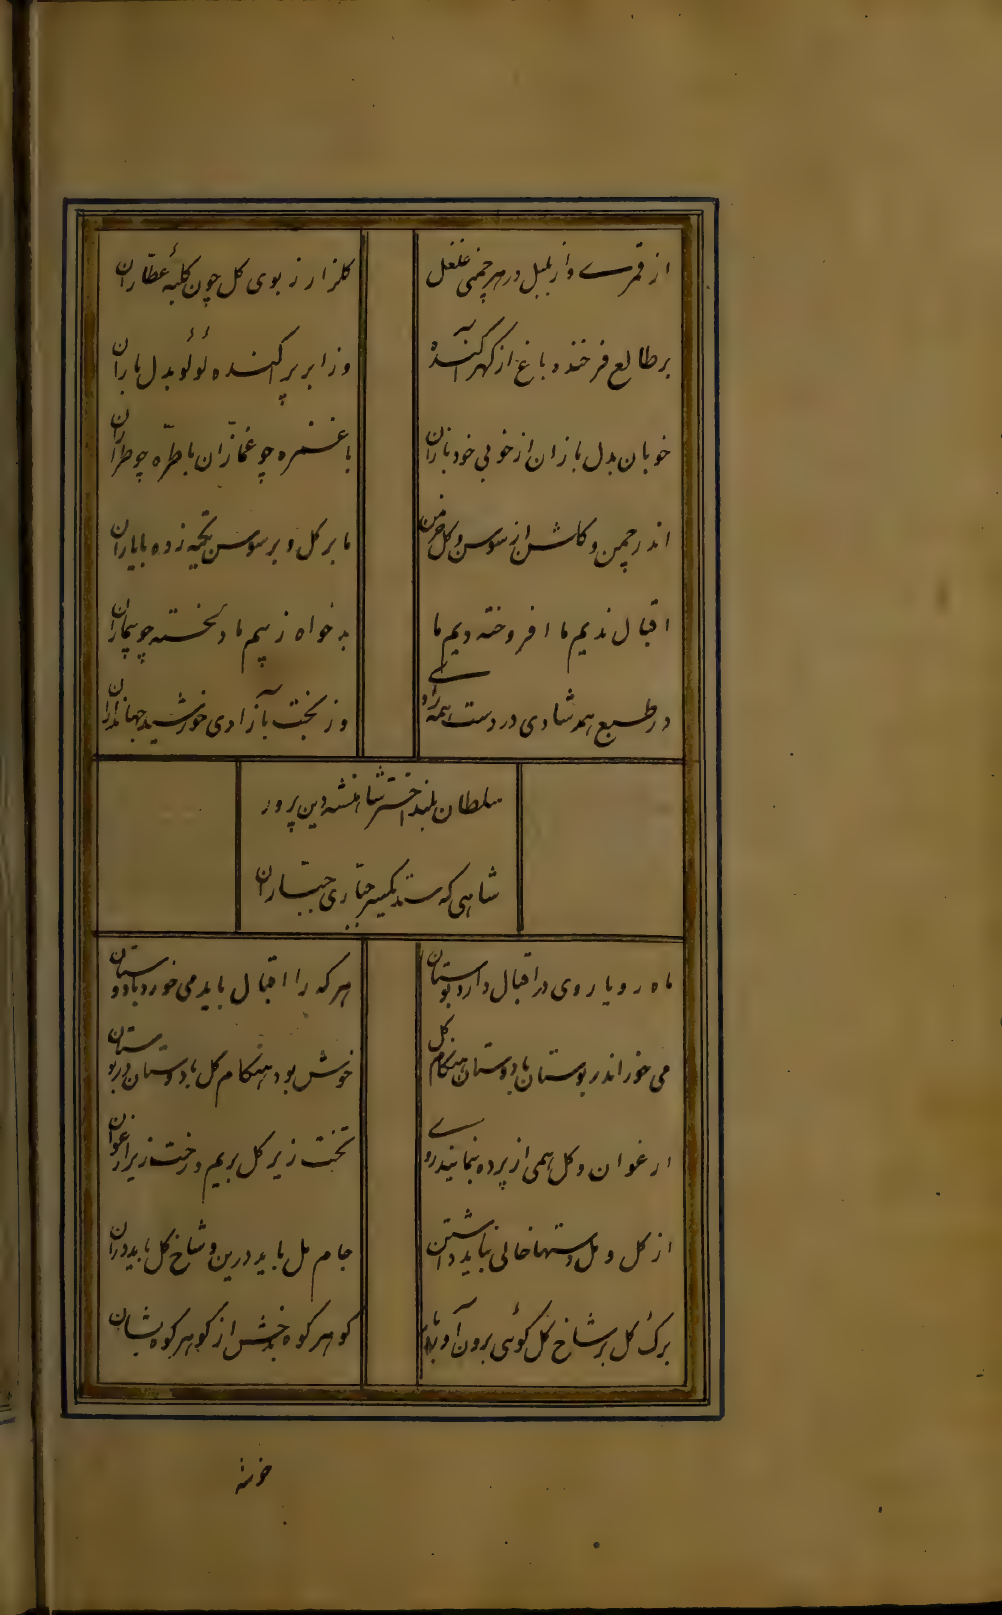 از قمرے و از بلبل در هر چمنی غلغل
کلزار ز بوی کل چون کلبهٔ عطّاران
بر طالع فرخنده باغ از کهر آکنده
وز ابر پراکنده لؤلؤ بدل باران
خوبان بدل بازان از خوبی خود نازان
با غمزه چو غمّازان با طرّه چو طرّاران
اندر چمن و کلشن از سوسن و کل خرمن
ما بر کل و بر سوسن تکیه زده با یاران
اقبال ندیم ما افروخته دیم ما
بدخواه ز بیم ما دلخسته چو بیماران
در طبع همه شادی در دست همه رادی
وز بخت بآزادی خورشید جهانداران
سلطان بلند اختر شاهنشه دین پرور
شاهی که ستد یکسر جبّاری جبّاران
ماه رویا روی در اقبال دارد بوستان
هر که را اقبال باید می خورد با دوستان
می خور اندر بوستان با دوستان هنکام کل
خوش بود هنکام کل با دوستان در بوستان
ارغوان و کل همی از پرده بنمایند روے
تخت زیر کل بریم و رخت زیر ارغوان
از کل و مل دستها خالی نباید داشتن
جام مل باید درین و شاخ کل باید در ان
برک کل بر شاخ کل کوئی برون آورد
کوهر کوه بدخش از کوهر کوه
خوشه